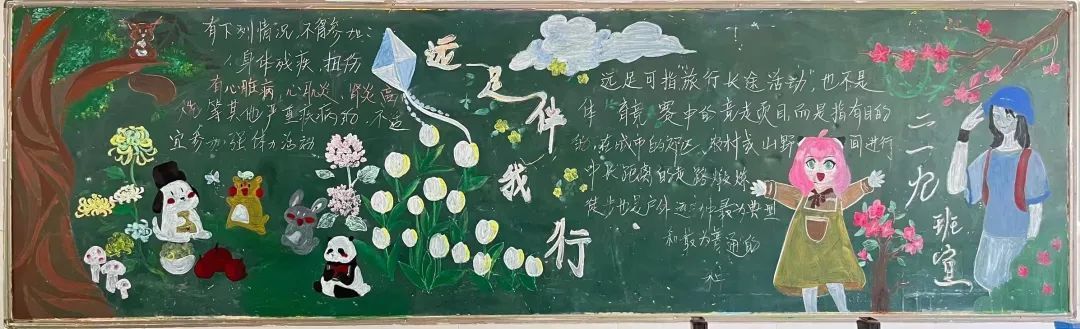 有下列情况,不能参加:
1.身体残疾,扭伤
有心脏病,心肌炎,肾炎,高
等其他严重疾病的,不适
宜参加强体力活动
远足伴我行
远足可指“旅行长途活动”也不是
体育竞赛中的竞走项目,而是指有目的
的在城市的郊区、农村或山野间进行
中长距离的走路锻炼
徒步也是户外运动最为典型
和最为普通的
二一九班宣